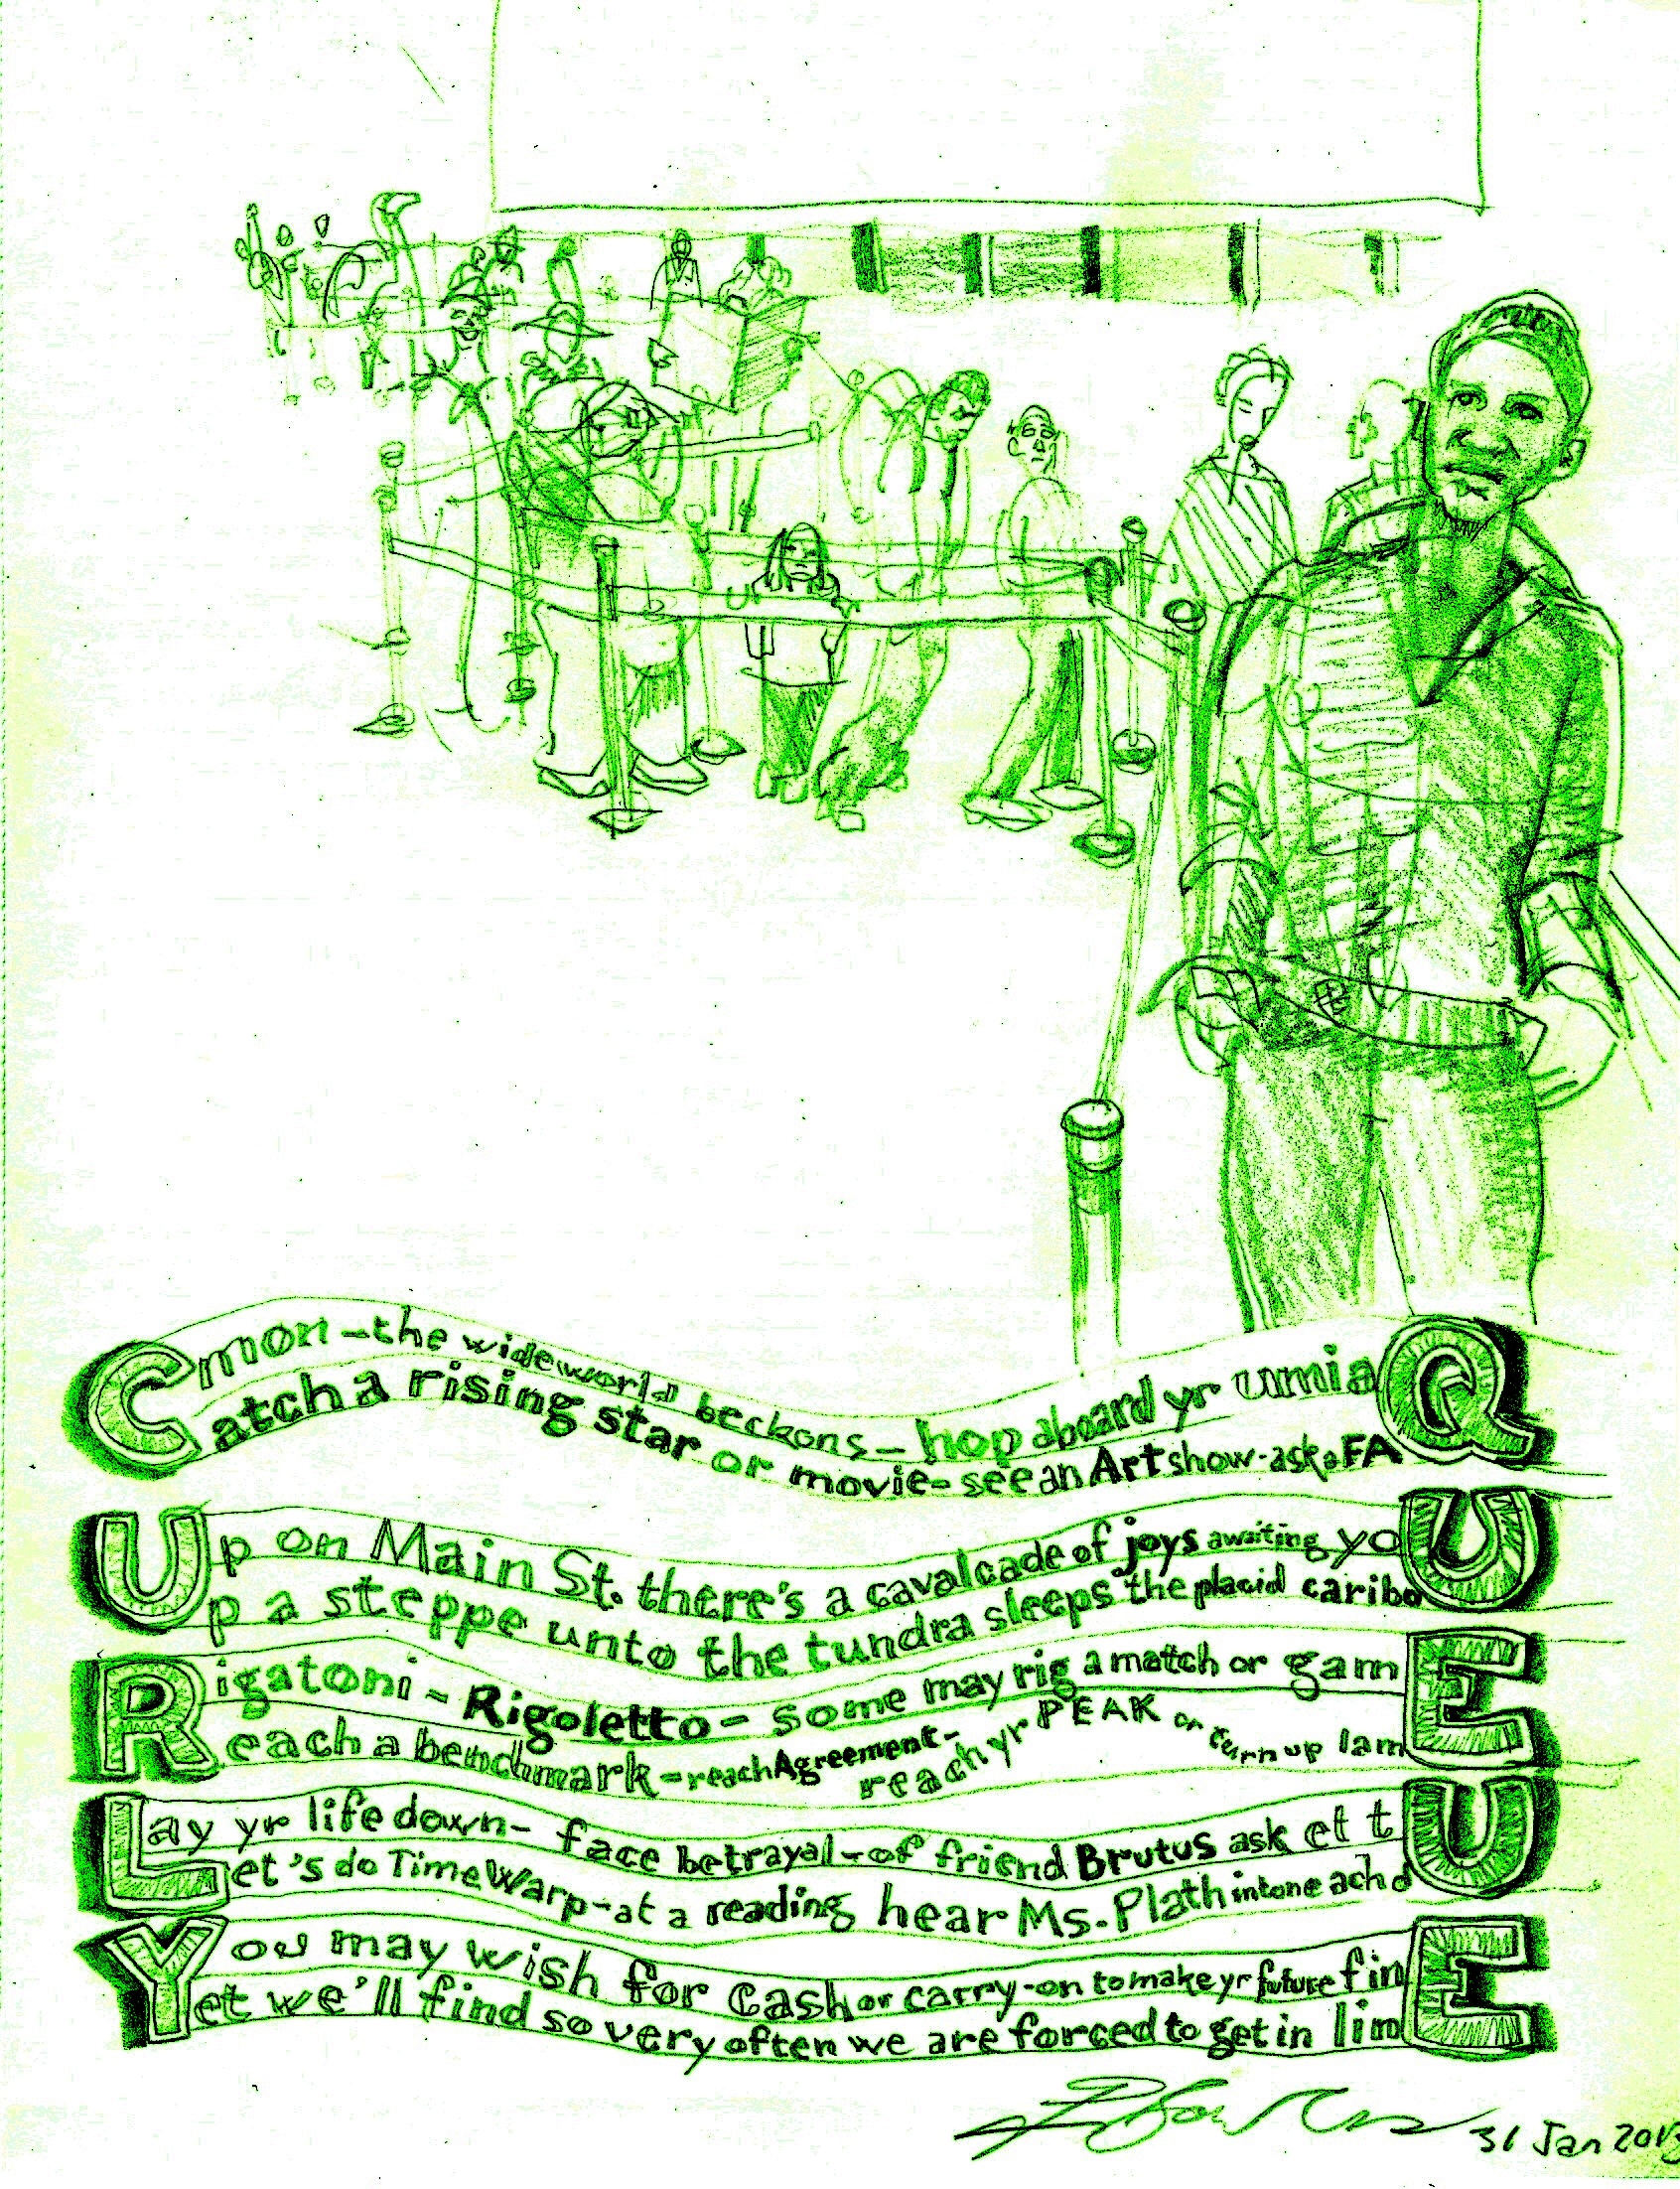 Cmon-the wide world beckons-hop aboard yr umiaQ
Catch a rising star or movie-see an Art show-ask a FAQ
Up on Main St. there's a cavalcade of joys awaiting yoU
Up a steppe unto the tundra sleeps the placid cariboU
Rigatoni-Rigoletto-some may rig a match or gamE
Reach a benchmark-reach Agreement-reach yr PEAK or turn up lamE
Lay yr life down-face betrayal-of friend Brutus ask et tU
Let's do Time Warp-at a reading hear Ms. Plath intone ach dU
You may wish for Cash or carry-on to make yr future finE
Yet we'll find so very often we are forced to get in linE
31 Jan 2013